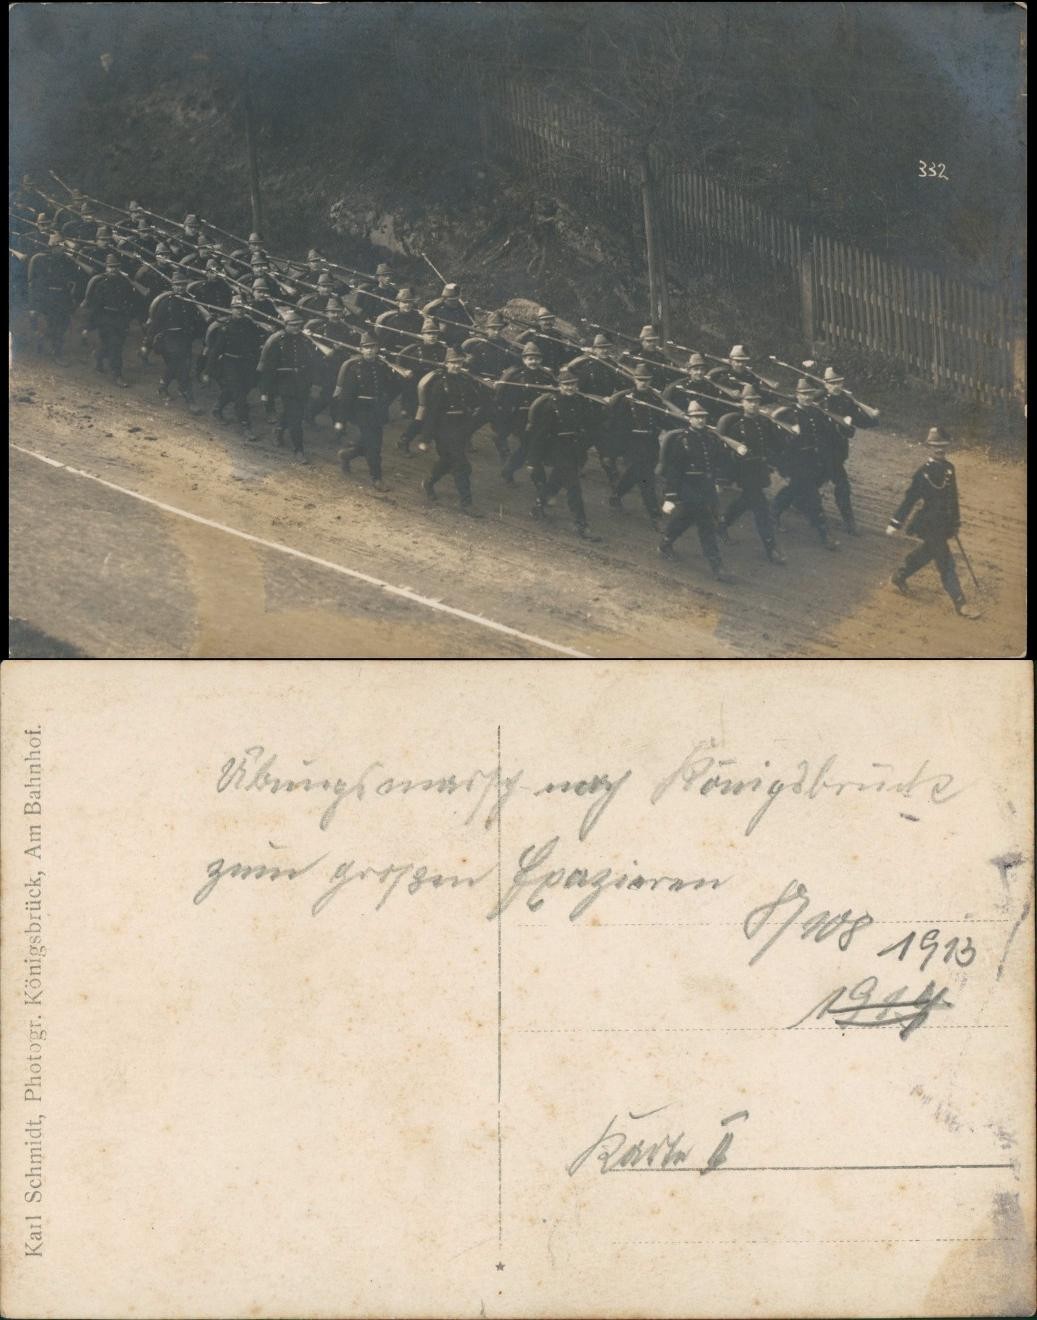 332
Karl Schmidt, Photogr. Königsbrück, Am Bahnhof.
Übungsmarsch nach Königsbrück
zum großen Exerzieren
108 1913
1914
Karte II